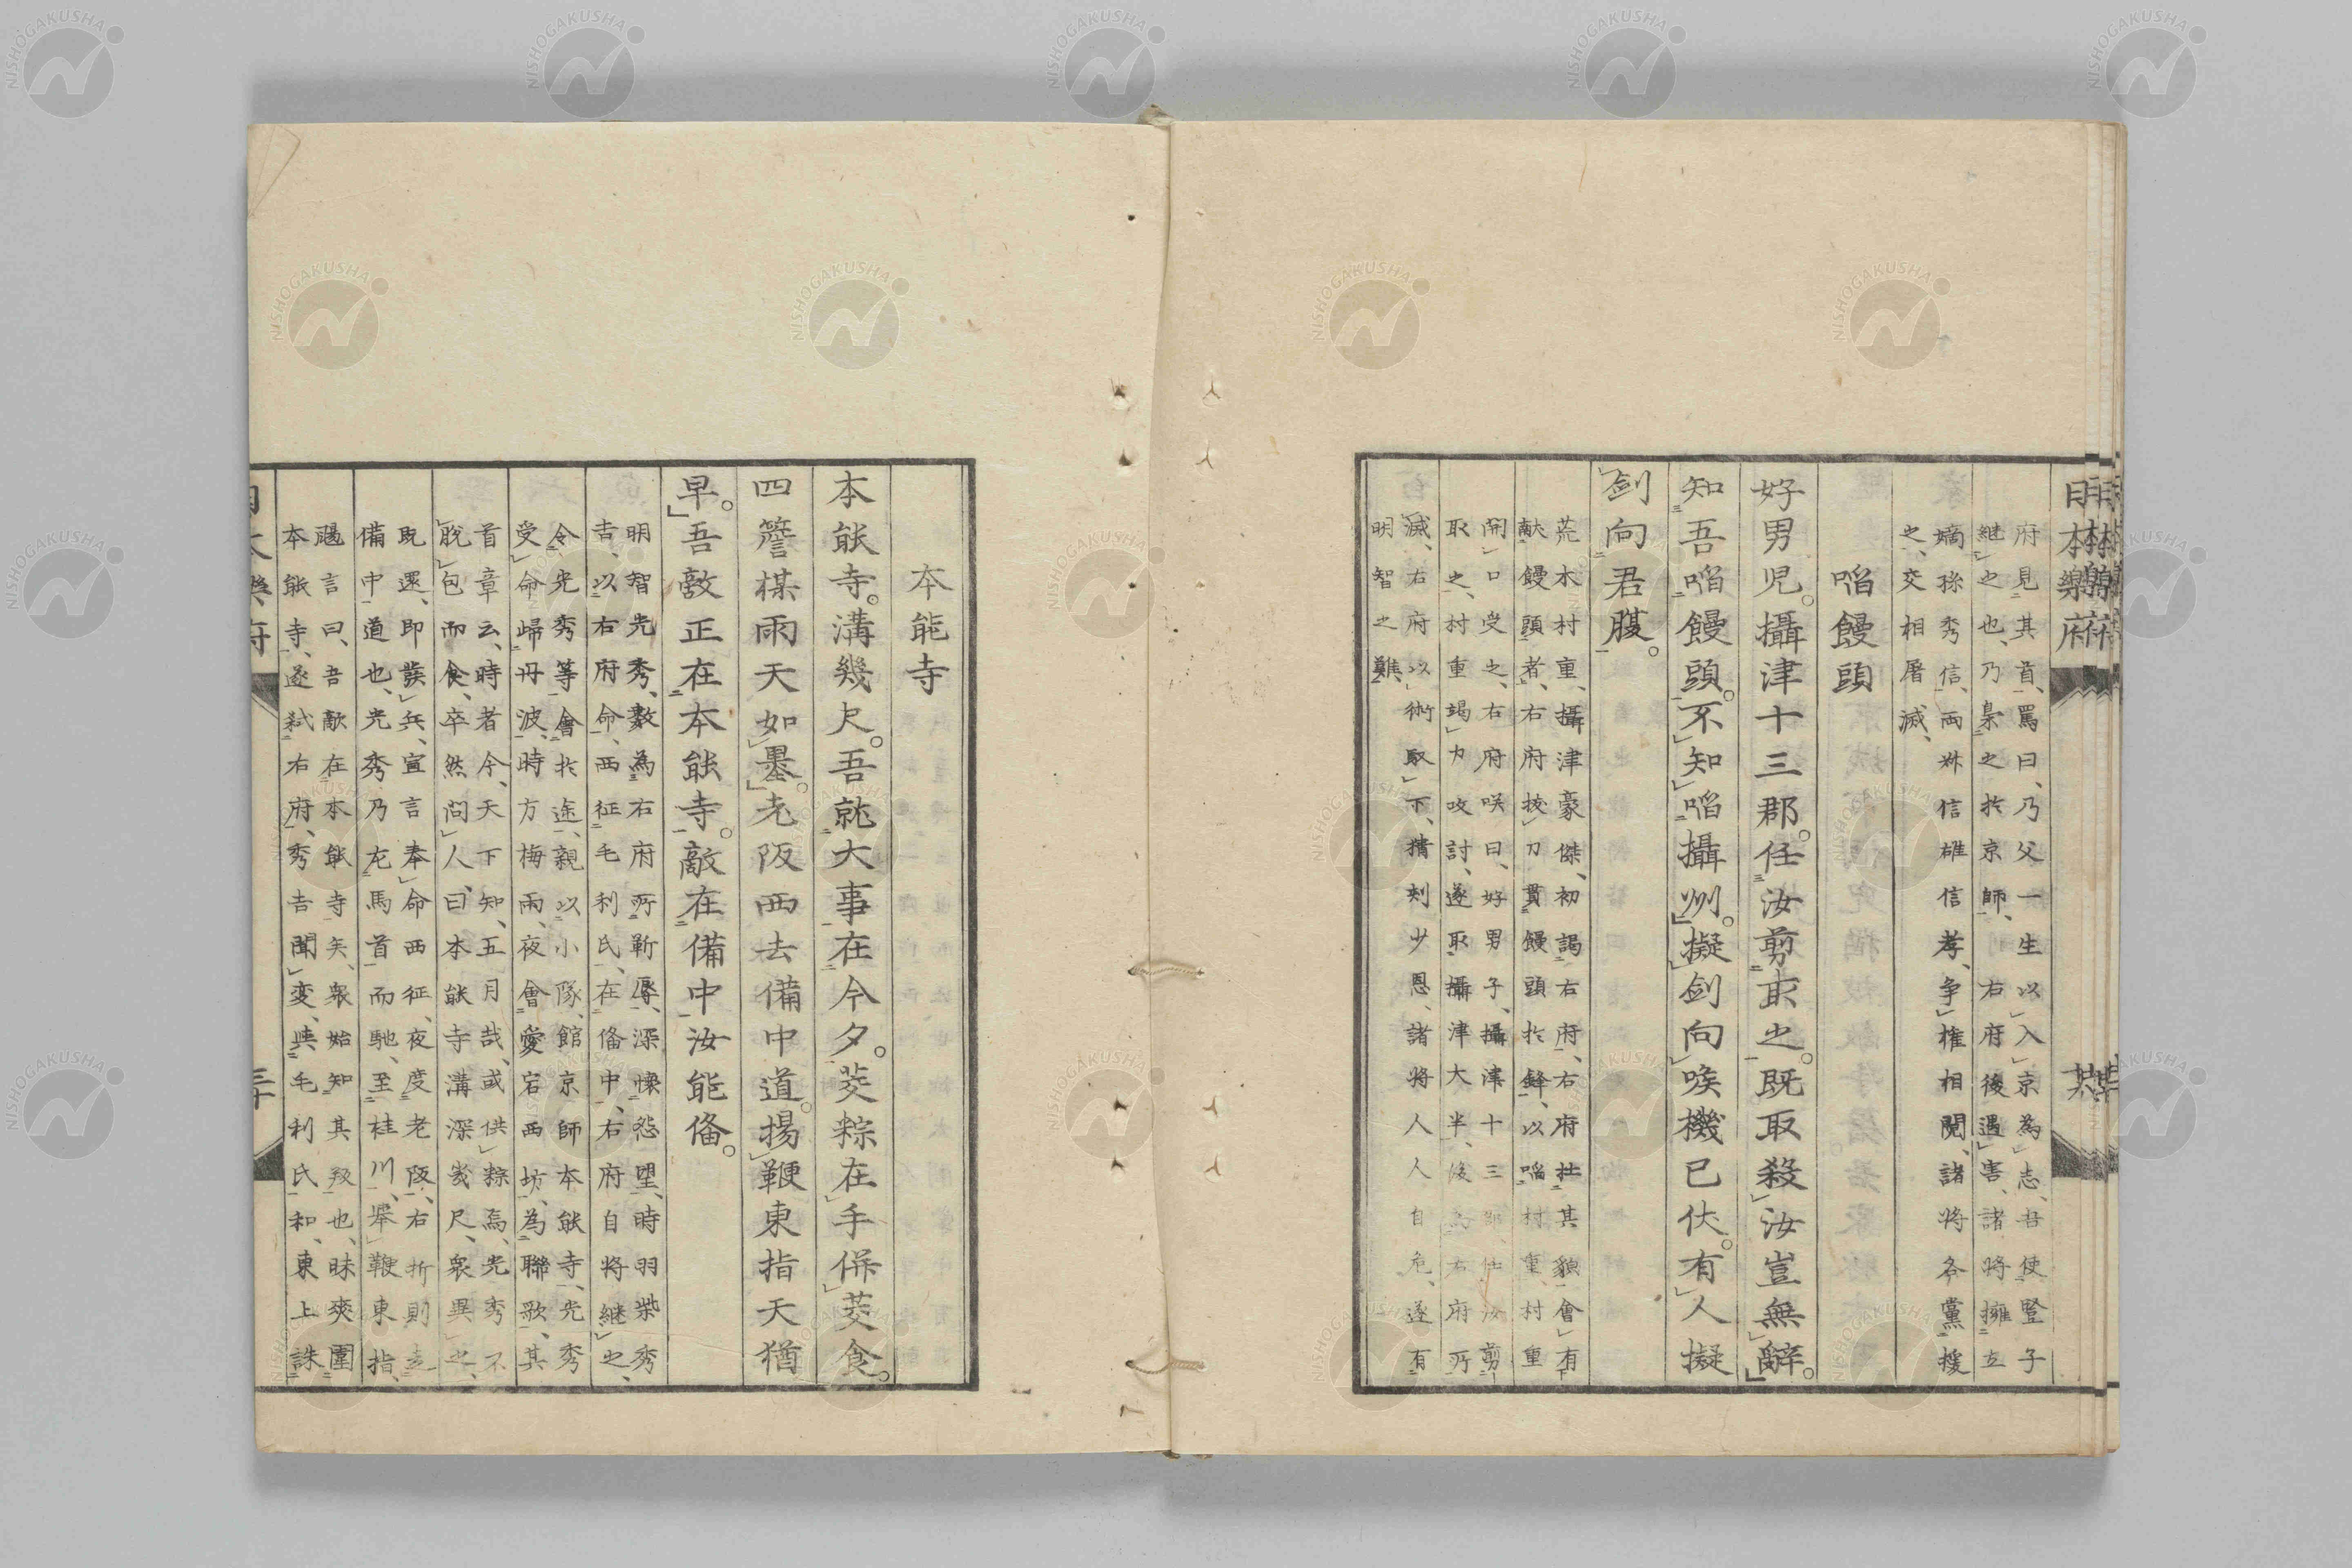 日本樂府
府見其首、罵曰、乃父一生以入京為志、吾使豎子
継之也、乃梟之於京師、右府後遇害、諸将擁立
嫡孫秀信、両叔信雄信孝、争権相鬩、諸将各黨援
之、交相屠滅、
啗饅頭
好男児。攝津十三郡。任汝剪取之。既取殺汝豈無辭。
知吾啗饅頭。不知啗攝州。擬剣向喉機已伏。有人擬
剣向君腹。
荒木村重、攝津豪傑、初謁右府、右府壮其貌會有
献饅頭者、右府抜刀貫饅頭於鋒、以啗村重、村重
開口受之、右府咲曰、好男子、攝津十三郡、任汝剪
取之、村重竭力攻討、遂取攝津大半、後為右府所
滅、右府以術取下、猜刻少恩、諸将人人自危、遂有
明智之難、
本能寺
本能寺。溝幾尺。吾就大事在今夕。茭粽在手併茭食。
四簷楳雨天如墨。老阪西去備中道。揚鞭東指天猶
早。吾敵正在本能寺。敵在備中汝能偹。
明智光秀、数為右府所靳辱、深懐怨望、時羽柴秀
吉、以右府命、西征毛利氏、在偹中、右府自将継之、
令光秀等會於途、親以小隊、館京師本能寺、光秀
受命歸丹波、時方梅雨、夜會愛宕西坊、為聯歌、其
首章云、時者今、天下知、五月哉、或供粽焉、光秀不
脱包而食、卒然問人、曰、本能寺溝深幾尺、衆異之、
既還、即發兵、宣言奉命西征、夜度老阪、右折則走
備中道也、光秀乃左馬首而馳、至桂川、擧鞭東指、
颺言曰、吾敵在本能寺矣、衆始知其叛也、昧爽圍
本能寺、遂弑右府、秀吉聞変、與毛利氏和、東上誅
日本樂府
三十